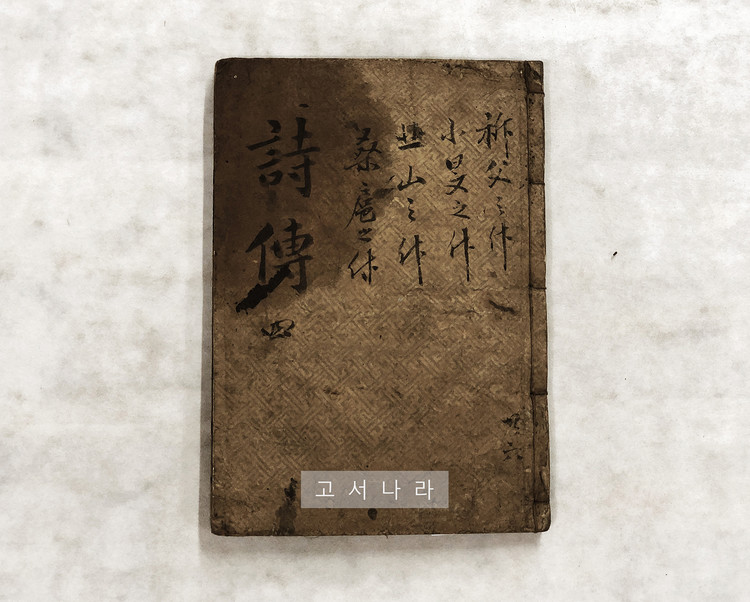 詩傳 四
祈父之什
小旻之什
北山之什
桑扈之什
共六
고서나라